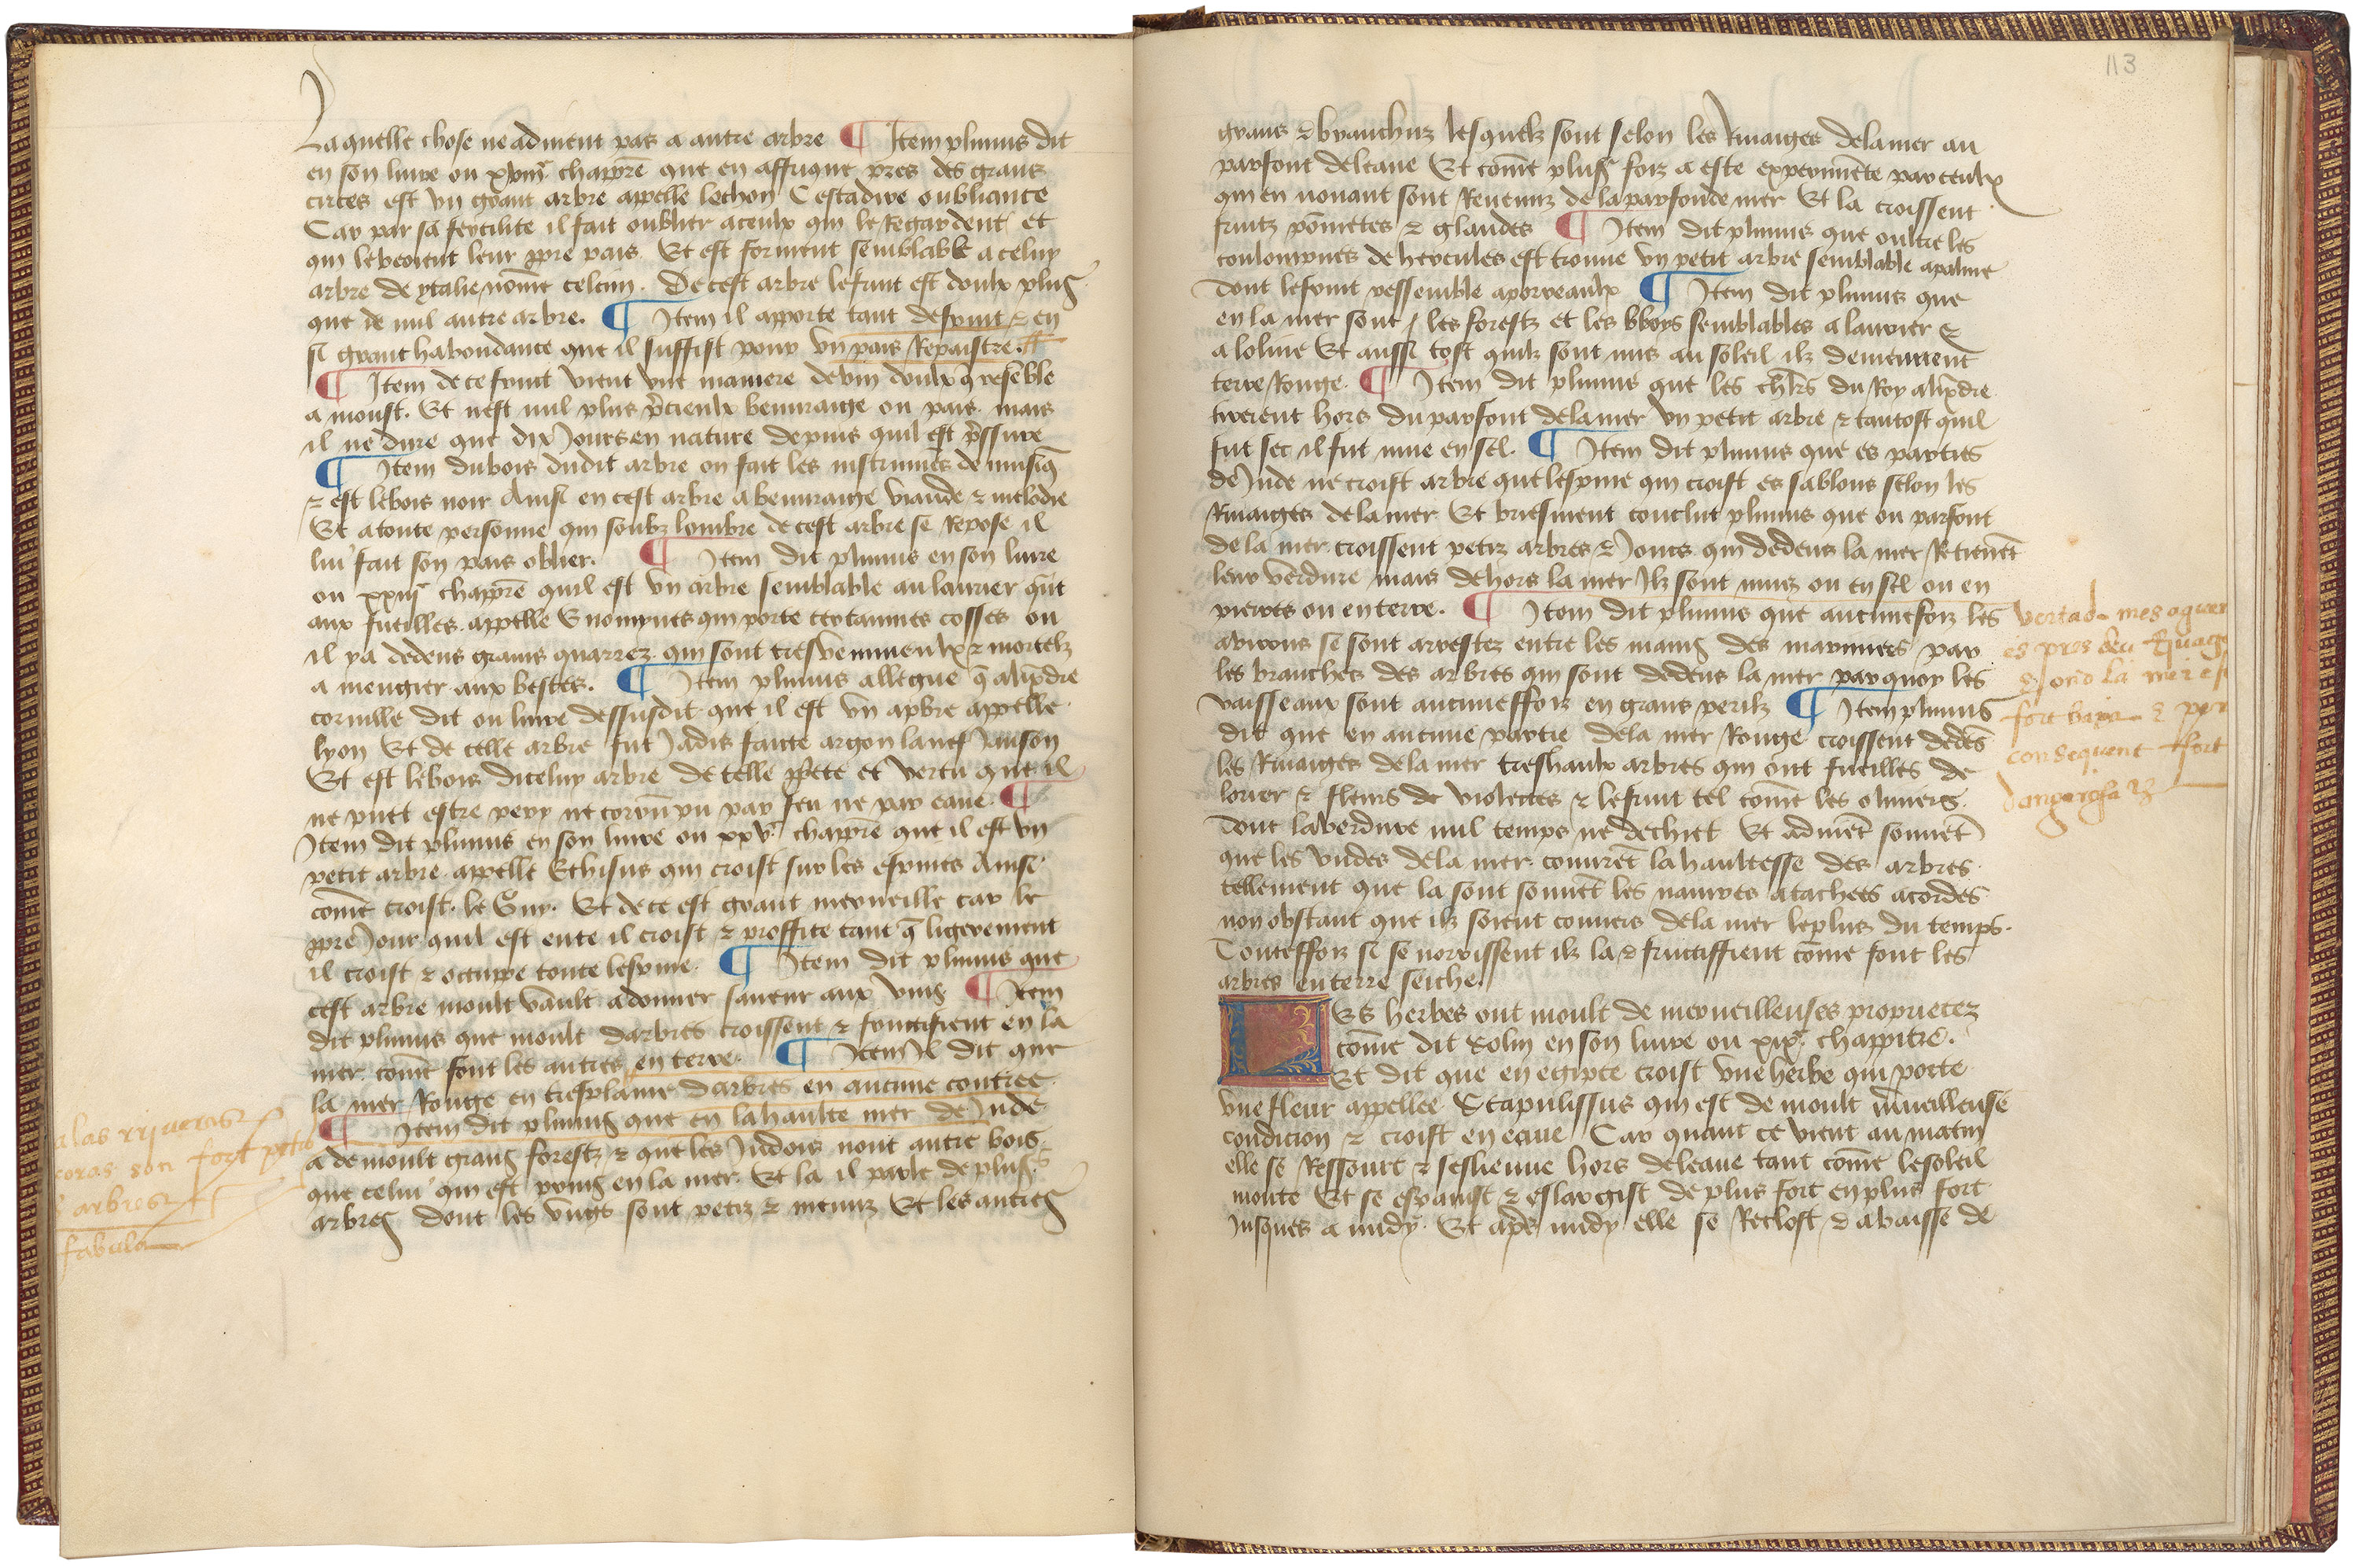 Laquelle chose ne advient pas a autre arbre ¶ Item plinius dit
en son livre ou xviiie chapp̄re que en affrique pres des grans
cirtes est vn grant arbre appelle lechon Cestadire oubliance
Car par sa fertilite il fait oublier a ceulx qui le Regardent et
qui le veoient leur ppre pais Et est forment semblable a celuy
arbre de ytalie nōme celcim. De cest arbre le fruit est doulx plus
que de nul autre arbre. ¶ Item il apporte tant de fruit et en
si grant habondance que il suffist pour vn pais Repaistre.
¶ Item de ce fruit vient vne maniere de vin doulx q̄ resēble
a moust. Et nest nul plus p̄cieulx beuuraige ou pais. mais
il ne dure que dix Jours en nature depuis quil est p̄ssure
¶ Item du bois dudit arbre on fait les instrumēs de musiq̄
et est le bois noir Ainsi en cest arbre a beuuraige viande et melodie
Et a toute personne qui soubz lombre de cest arbre se Repose il
lui fait son pais oblier. ¶ Item dit plinius en son livre
ou xxiiie chapp̄re quil est vn arbre semblable au laurier q̄nt
aux fueilles. appelle Enomynes qui porte certaines cosses ou
il y a dedens grains quarrez qui sont tresvenimeulx et mortelz
a mengier aux bestes. ¶ Item plinius allegue q̄ alixādre
cornille dit ou livre dessusdit que il est vn arbre appelle
lyon Et de celle arbre fut Jadis faicte argon la nef Janson
Et est le bois diceluy arbre de telle pp̄ete et vertu que il
ne puet estre pery ne corrūpu par feu ne par eaue ¶
Item dit plinius en son livre ou xxve chapp̄re que il est vn
petit arbre appelle Ethisus qui croist sur les espines Ainsi
cōme croist le Guy. Et de ce est grant merueille car le
ppre Jour quil est ente il croist et proffite tant q̄ ligerement
il croist et occuppe toute lespine. ¶ Item dit plinius que
cest arbre moult vault a donner saueur aux vins ¶ Item
dit plinius que moult darbres croissent et fructifient en la
mer cōme font les autres en terre. ¶ Item il dit que
la mer Rouge en tresplaine darbres en aucune contree
¶ Item dit plinius que en la haulte mer de Jnde
a de moult grans forestz et que les Jndois nont autre bois
que celui qui est prins en la mer. Et la il parle de plus̄s
arbres dont les vngs sont petiz et menuz Et les autres
a las rriueras
son fort
arbres
fabula
113
grans et branchuz lesquelz sont selon les Riuaiges de la mer au
parfont de leaue Et cōme plus̄ foiz a este experimēte par ceulx
qui en nouant sont Reuenuz de la parfonde mer Et la croissent
fruitz pōmetes et glandes ¶ Item dit plinius que oultre les
coulompnes de hercules est trouue vn petit arbre semblable a palme
dont le fruit ressemble a porreaulx ¶ Item dit plinius que
en la mer sont les forestz et les bboys semblables a laurier et
a loliue Et aussi tost quilz sont mis au soleil ilz demeurent
terre Rouge. ¶ Item dit plinius que les chl̄rs du Roy alixādre
tirerent hors du parfont de la mer vn petit arbre et tantost quil
fut sec il fut mue en sel. ¶ Item dit plinius que es parties
de Jnde ne croist arbre que lespine qui croist es sablons selon les
Riuaiges de la mer Et briefment conclut plinius que ou parfont
de la mer croissent petiz arbres et Joncs qui dedens la mer Retienēt
leur verdure mais dehors la mer Jlz sont muez ou en sel ou en
pierres ou en terre. ¶ Item dit plinius que aucunefoiz les
auirons se sont arrestez entre les mains des mariniers par
les branches des arbres qui sont dedens la mer par quoy les
vaisseaux sont aucuneffoiz en grans perilz ¶ Item plinius
dit que en aucune partie de la mer Rouge croissent dedēs
les Riuaiges de la mer treshaulx arbres qui ont fueilles de
lorier et fleurs de violectes et le fruit tel cōme les oliuiers
Dont la verdure nul temps ne dechiet Et aduiēt souuēt
que les vndes de la mer cueuurēt la haultesse des arbres
tellement que la sont souuēt les nauires atachees a cordes
non obstant que ilz soient couuers de la mer le plus du temps.
Touteffoiz si se norrissent ilz la et fructiffient cōme font les
arbres en terre seiche.
Les herbes ont moult de merueilleuses proprietez
cōme dit Solin en son livre ou xixe chappitre.
Et dit que en egipte croist vne herbe qui porte
vne fleur appellee Etapulissus qui est de moult m̄ueilleuse
condicion et croist en eaue Car quant ce vient au matin
elle se Ressourt et seslieuue hors de leaue tant cōme le soleil
monte Et se espanist et eslargist de plus fort en plus fort
Jusques a midy. Et ap̄s midy elle se Reclost et abaisse de
vertad mes aquer
es pres deu Riuage
fond la mer es
fort baxa e per
consequent fort
dangerosa